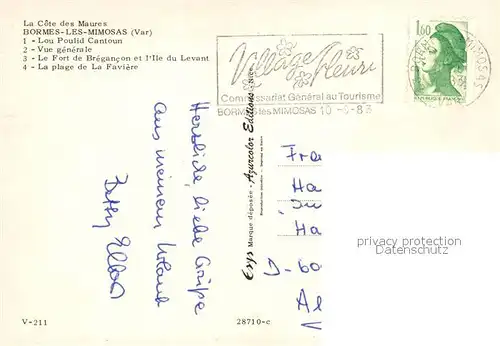 La Côte des Maures
BORMES-LES-MIMOSAS (Var)
1 - Lou Poulid Cantoun
2 - Vue générale
3 - Le Fort de Brégançon et l'Ile du Levant
4 - La plage de La Favière
Village Fleuri
Commissariat Général au Tourisme
BORMES les MIMOSAS 10-9-83
1,60
MIMOSAS
Herzliche, liebe Grüße
aus meinem Urlaub
Marque déposée - Azurcolor Editions - Nice
Fra
Ha
Ha
D-60
Al
privacy protection
Datenschutz
V-211
28710-c